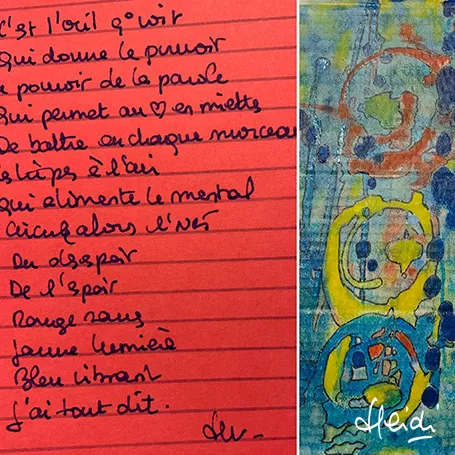 C'est l'œil q° voit
Qui donne le pouvoir
e pouvoir de la parole
Qui permet au ♡ en miettes
De battre en chaque morceau
à l'air
qui alimente le mental
Circule alors
Du désespoir
De l'espoir
Rouge sang
Jaune lumière
Bleu vibrant
J'ai tout dit.
Heidi